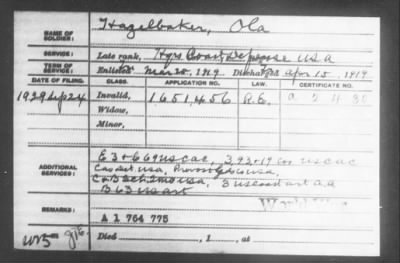 NAME OF SOLDIER: Hazelbaker, Ola
SERVICE: Late rank, Hqrs Coast Defense USA
TERM OF SERVICE: Enlisted Mar 25, 1919, Discharged Apr. 15, 1919
DATE OF FILING. CLASS. APPLICATION NO. LAW. CERTIFICATE NO.
1929 Sep 24 Invalid, 1651456 R.E. a 5 4 30
Widow,
Minor,
ADDITIONAL SERVICES: E 3+6 69 US CAC, 3, 23+19 Co USCAC
Cas det USA, USA,
USA, 3 US Coast art a.a
B 63 US art
REMARKS: A 1 764 775
Died , 1 , at